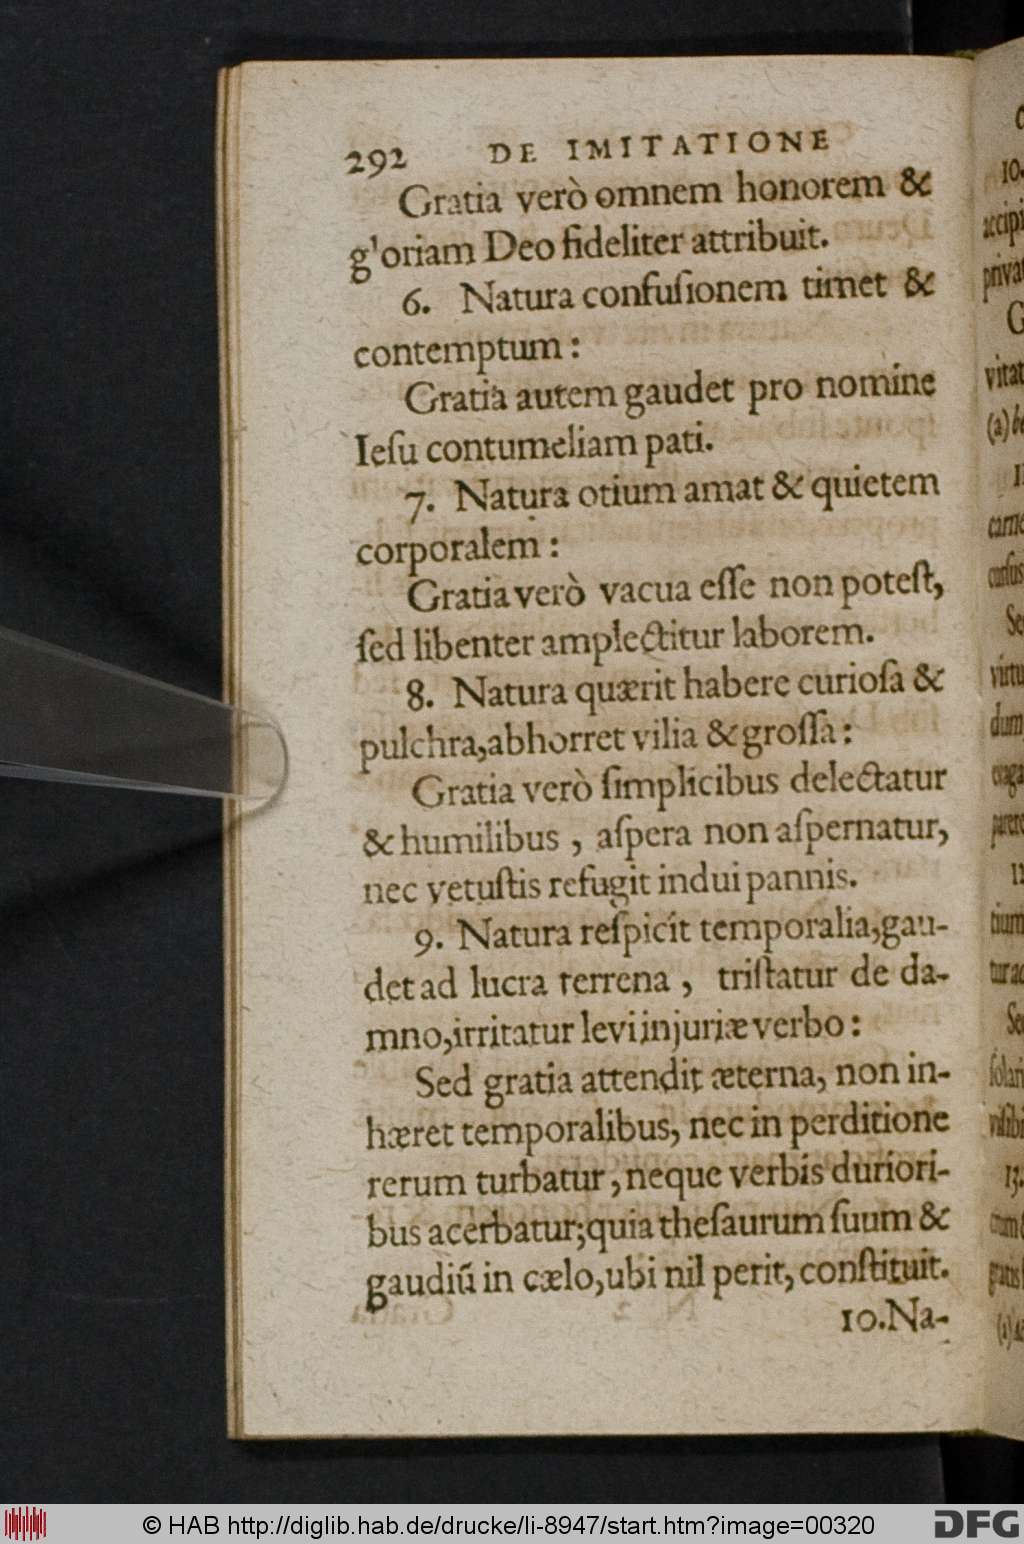 292 DE IMITATIONE
Gratia verò omnem honorem &
g'oriam Deo fideliter attribuit.
6. Natura confuſionem timet &
contemptum:
Gratia autem gaudet pro nomine
Ieſu contumeliam pati.
7. Natura otium amat & quietem
corporalem:
Gratia verò vacua eſſe non poteſt,
ſed libenter amplectitur laborem.
8. Natura quærit habere curioſa &
pulchra, abhorret vilia & groſſa:
Gratia verò ſimplicibus delectatur
& humilibus, aſpera non aſpernatur,
nec vetuſtis refugit indui pannis.
9. Natura reſpicit temporalia, gau-
det ad lucra terrena, triſtatur de da-
mno, irritatur levi injuriæ verbo:
Sed gratia attendit æterna, non in-
hæret temporalibus, nec in perditione
rerum turbatur, neque verbis duriori-
bus acerbatur; quia theſaurum ſuum &
gaudiū in cælo, ubi nil perit, conſtituit.
10. Na-
10.
accipi
privat
G
vitat
(a) be
carne
curſus
Se
virtu
dum
evaga
parere
tium
tur ac
Se
ſolari
viſibi
13.
gratis
© HAB http://diglib.hab.de/drucke/li-8947/start.htm?image=00320
DFG